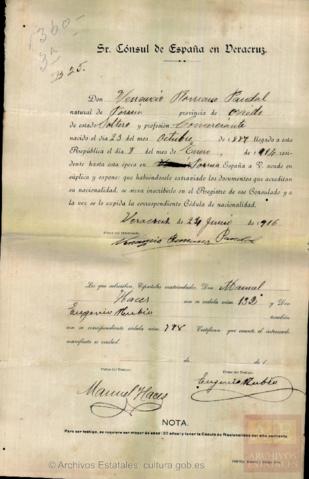 1360-
3-
B25.
Sr. Cónsul de España en Veracruz.
Don Venancio Romano Pandal
natural de Porrua provincia de Oviedo
de estado Soltero y profesión Comerciante
nacido el día 23 del mes Octubre de 1887 llegado a esta
República el día 8 del mes de Enero de 1914 resi-
dente hasta esta época en Porrua España a V. acude en
súplica y expone: que habiéndosele extraviado los documentos que acreditan
su nacionalidad, se sirva inscribirlo en el Registro de ese Consulado y a
la vez se le expida la correspondiente Cédula de nacionalidad.
Veracruz 24 Junio de 1916
Venancio Romano Pandal
Los que subscriben, Españoles matriculados: Don Manuel
Haces con su cédula núm. 132 y Don
Eugenio Rubio también
con su correspondiente cédula núm. 788 Certifican que cuanto el interesado
manifiesta es verdad.
de de 1
Firma del Testigo. Firma del Testigo.
Manuel Haces Eugenio Rubio
NOTA.
Para ser testigo, se requiere ser mayor de edad (23 años) y tener la Cédula de Nacionalidad del año corriente.
© Archivos Estatales. cultura.gob.es